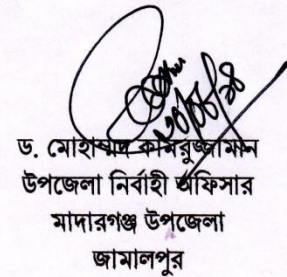 ড. মোহাম্মদ কামরুজ্জামান
উপজেলা নির্বাহী অফিসার
মাদারগঞ্জ উপজেলা
জামালপুর